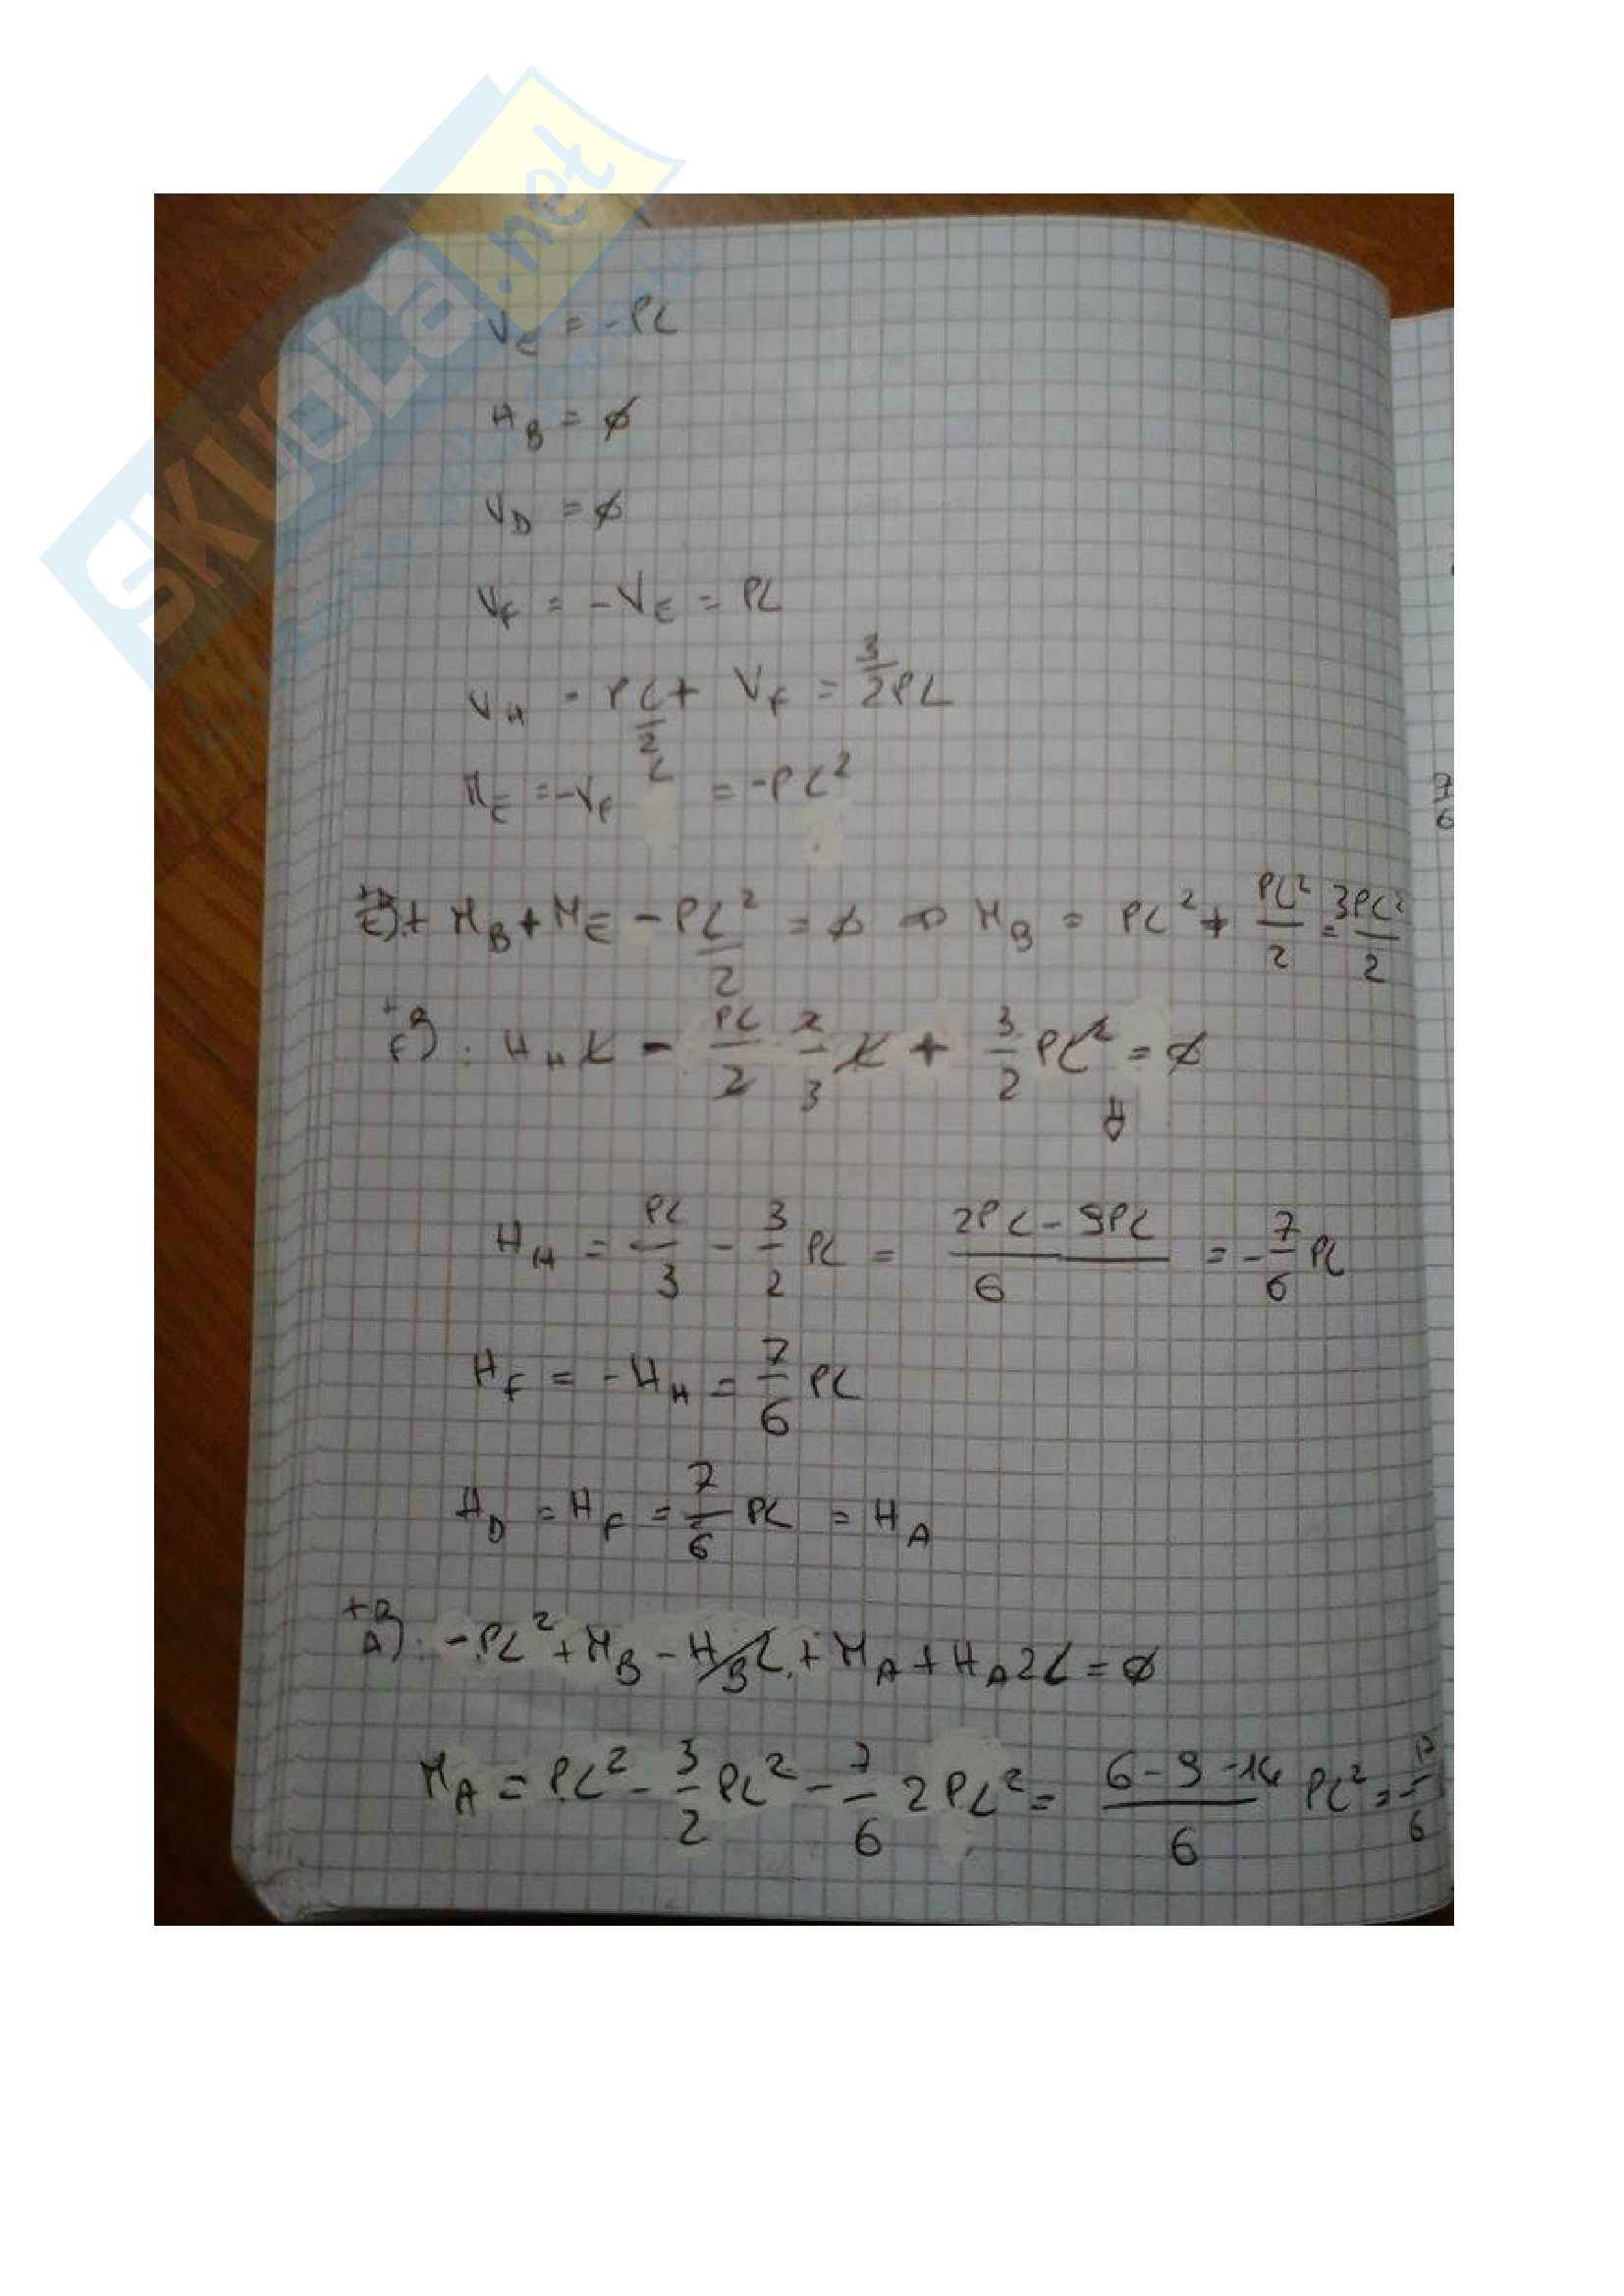 SKUOLA.net
V_E = -PL
H_B = ∅
V_D = ∅
V_F = -V_E = PL
V_H = PL/2 + V_F = 3/2 PL
M_E = -V_F L = -PL²
E) + M_B + M_E - PL²/2 = ∅ ⇒ M_B = PL² + PL²/2 = 3PL²/2
F) : H_H L - PL/2 2/3 L + 3/2 PL² = ∅
⇓
H_H = PL/3 - 3/2 PL = (2PL - 9PL)/6 = -7/6 PL
H_F = -H_H = 7/6 PL
H_D = H_F = 7/6 PL = H_A
A) : -PL² + M_B - H_B L + M_A + H_A 2L = ∅
M_A = PL² - 3/2 PL² - 7/6 2PL² = (6 - 9 - 14)/6 PL² = -17/6
7/6